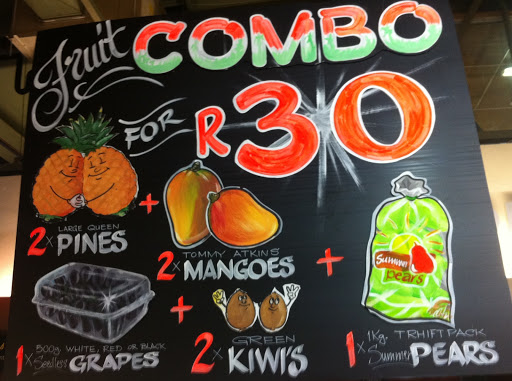 Fruit COMBO
FOR R30
LARGE QUEEN
2x PINES
+
TOMMY ATKINS
2x MANGOES
+
Summer
pears
500g WHITE, RED OR BLACK
1x Seedless GRAPES
+
GREEN
2x KIWI'S
1Kg. TRHIFT PACK
1x Summer PEARS